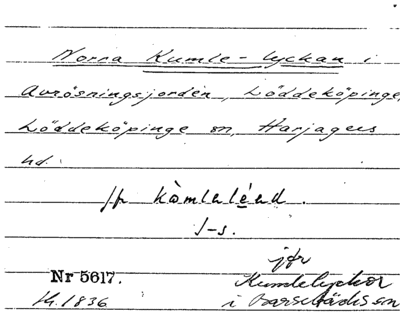 Norra Kumle-lyckan i
Avrösningsjorden, Löddeköpinge,
Löddeköpinge sn, Harjagers
hd.
kòmlalé
I-s.
jfr
Nr 5617.
Kumlelyckor
14.1836
i Barsebäcks sn